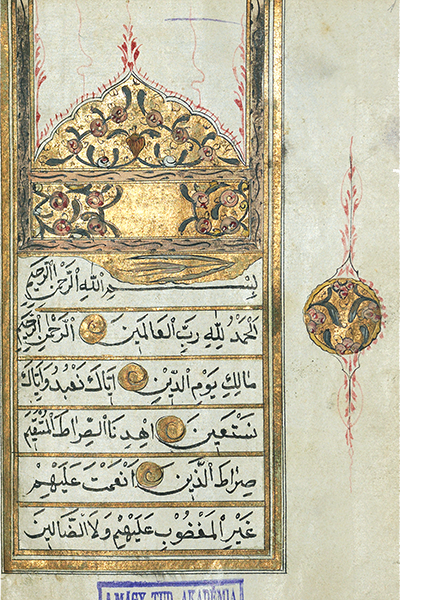 بِسْــــمِ اللّٰهِ الرَّحْمٰنِ الرَّحِيمِ
اَلْحَمْدُ لِلّٰهِ رَبِّ الْعَالَمِينَ الرَّحْمٰنِ الرَّحِيمِ
مَالِكِ يَوْمِ الدِّينِ اِيَّاكَ نَعْبُدُ وَاِيَّاكَ
نَسْتَعِينُ اِهْدِنَا الصِّرَاطَ الْمُسْتَقِيمَ
صِرَاطَ الَّذِينَ اَنْعَمْتَ عَلَيْهِمْ
غَيْرِ الْمَغْضُوبِ عَلَيْهِمْ وَلَا الضَّالِّينَ
MAGY. TUD. AKADÉMIA